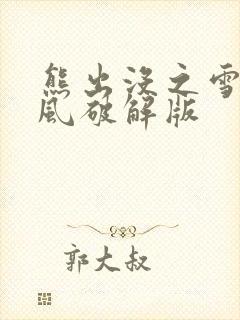 熊出没之雪
风破解版
郭大叔